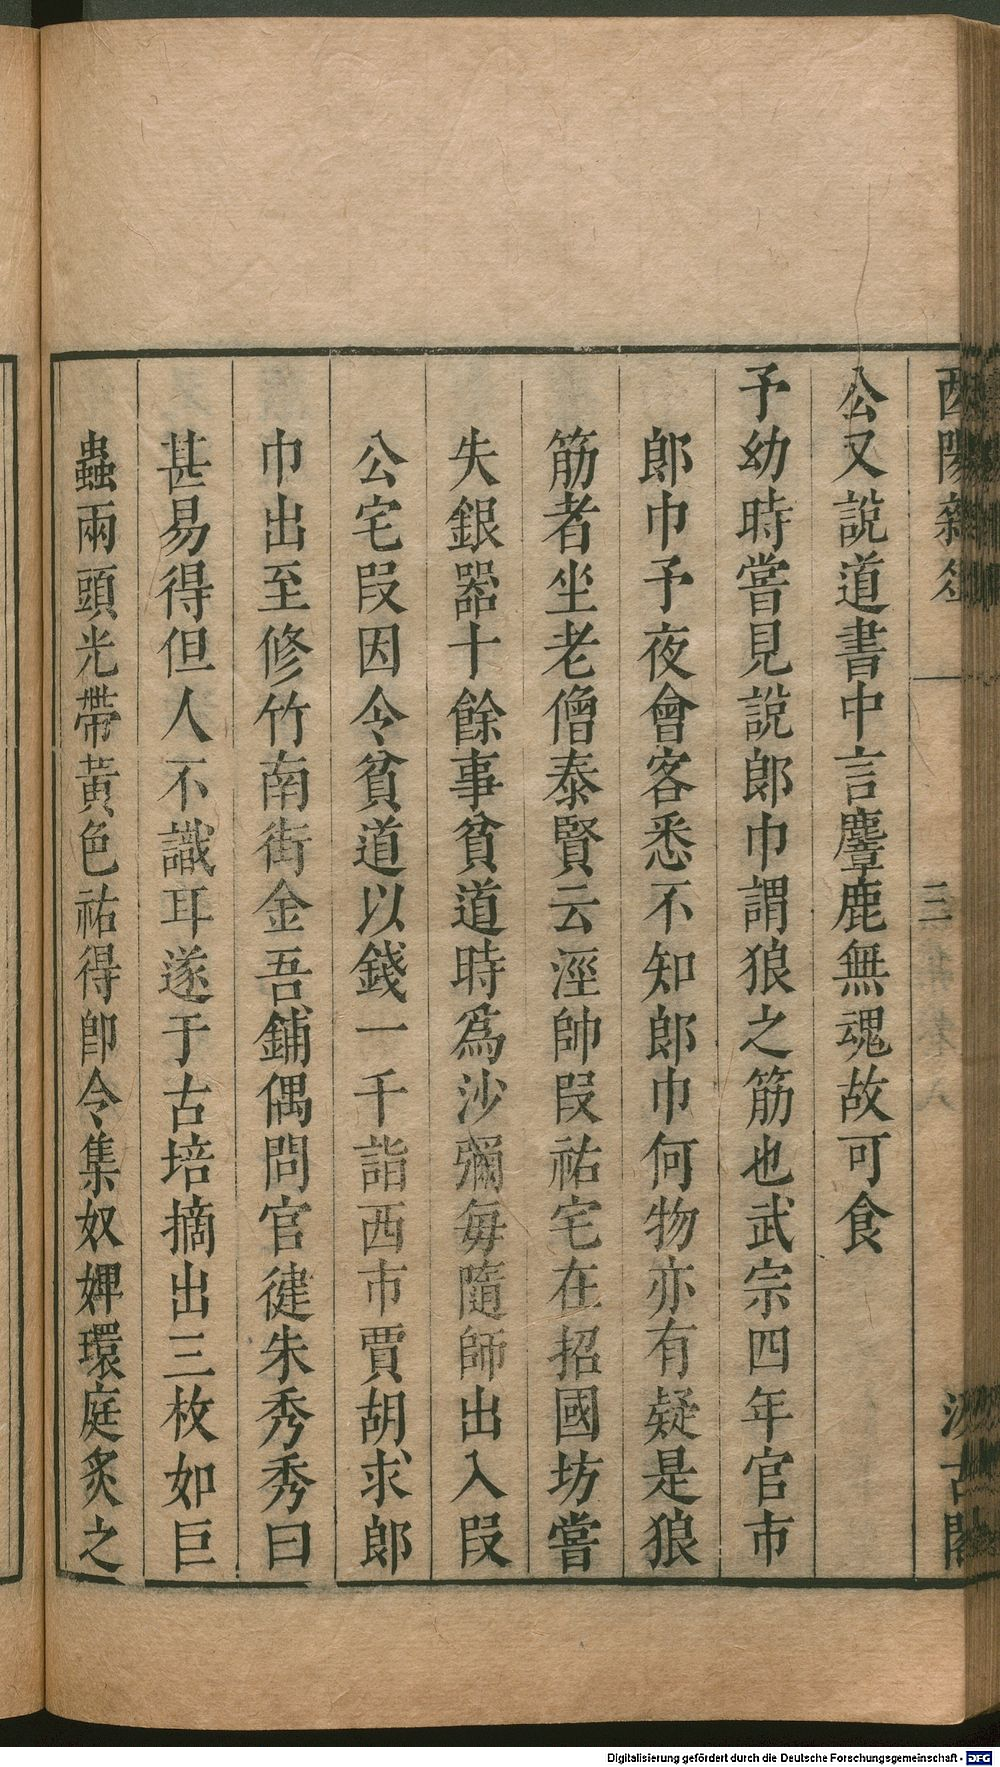 酉陽雜俎
三
汲古閣
公又說道書中言麞鹿無魂故可食
予幼時嘗見說郎巾謂狼之筋也武宗四年官市
郎巾予夜會客悉不知郎巾何物亦有疑是狼
筋者坐老僧泰賢云涇帥段祐宅在招國坊嘗
失銀器十餘事貧道時爲沙彌每隨師出入段
公宅段因令貧道以錢一千詣西市賈胡求郎
巾出至修竹南街金吾鋪偶問官健朱秀秀曰
甚易得但人不識耳遂于古培摘出三枚如巨
蟲兩頭光帶黃色祐得卽令集奴婢環庭炙之
Digitalisierung gefördert durch die Deutsche Forschungsgemeinschaft - DFG